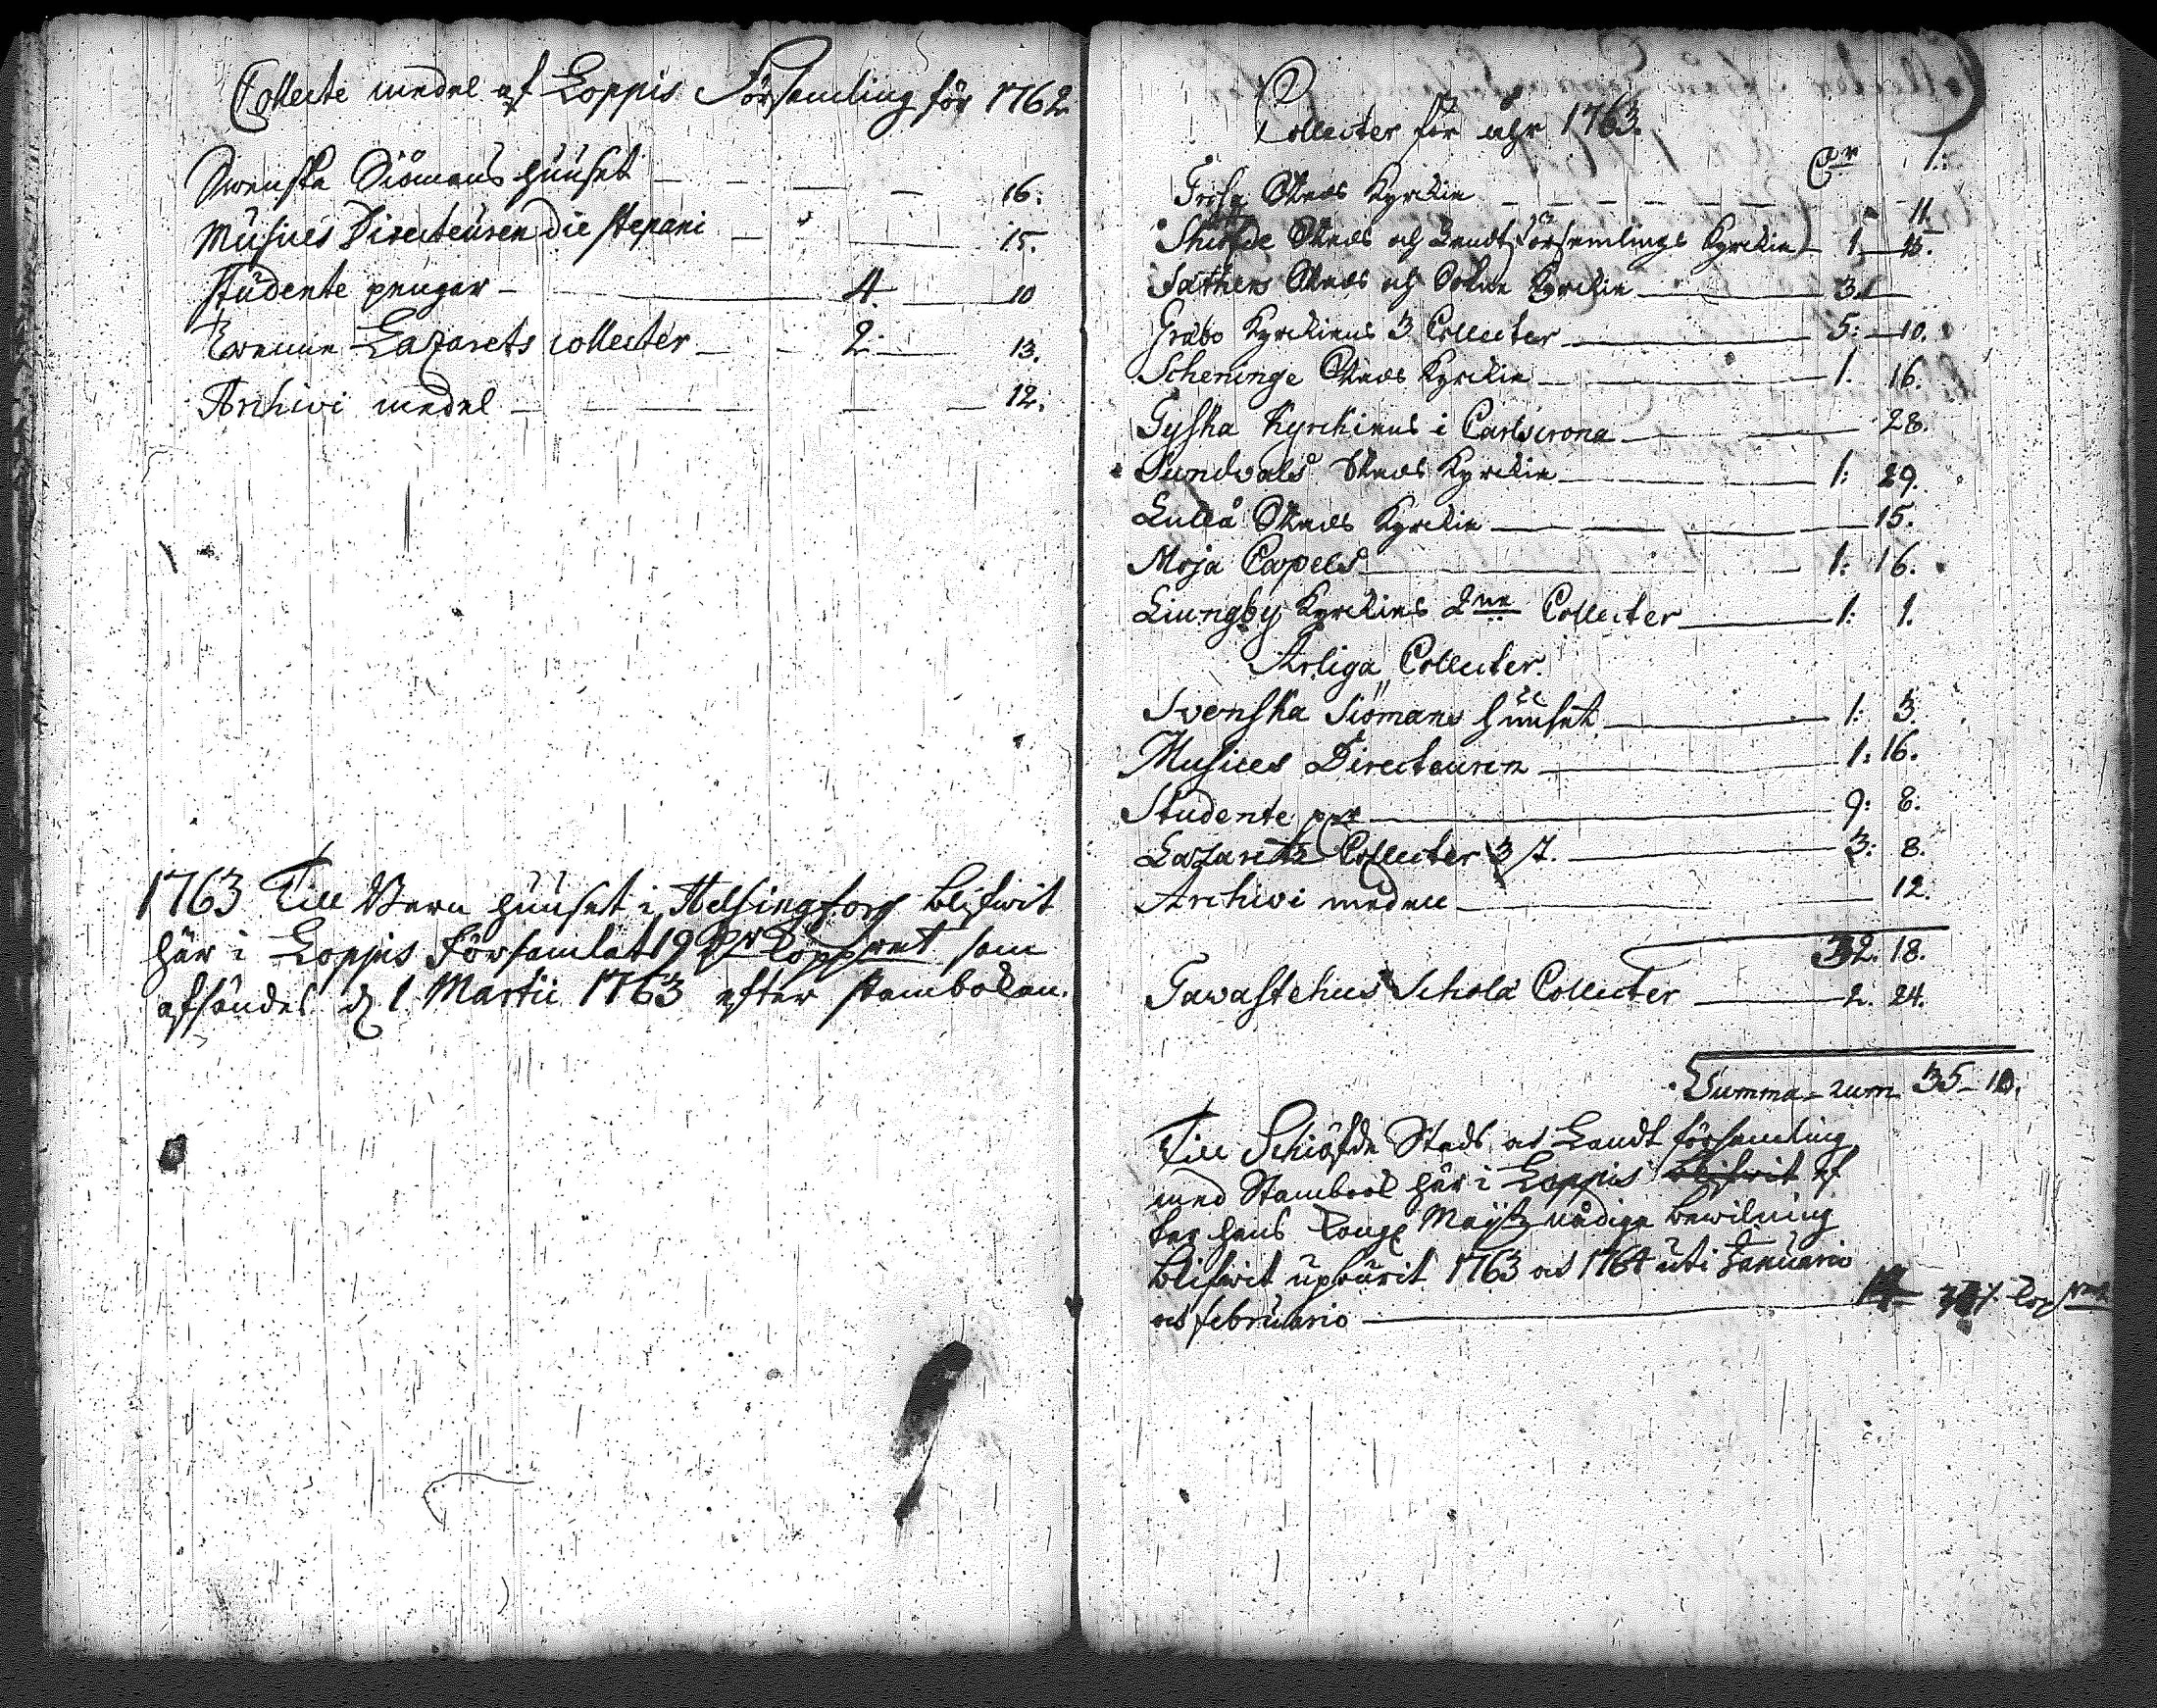 Collecte medel af Loppis Församling för 1762
Swenska Siömans huuset — — — — 16.
Musices Directeuren die stepani — — 15.
studente pengar — — 4. — 10
Twenne Lazarets collecter — — 2. — 13.
Archivi medel — — — — — 12.
1763 Till Barn huuset i Helsingfors blifwit
här i Loppis Församlat 19 som
afsändes d 1 Martii 1763 efter stamboken.
Collecter för åhr 1763.
Trosa Stads Kyrckia — — — — — — 11.
Skiöfde Stads och Landt Församlings Kyrckia — 1.
Sathers Stads och Sokne Kyrckia — 3.
Gräbo Kyrckians 3 Collecter — 5: — 10.
Scheninge Stads Kyrckia — 1. 16.
Tyska Kyrckians i Carlscrona — 28.
Sundvals Stads Kyrckia — 1: 29.
Luleå Stads Kyrckia — 15.
Moja Capels — 1: 16.
Liungby Kyrckias 2ne Collecter — 1: 1.
Årliga Collecter.
Svenska Siömans huuset — 1: 3.
Musices Directeuren — 1: 16.
Studente — 9: 8.
Lazarets Collecter 3 — 3: 8.
Archivi medell — 12.
32. 18.
Tawastehus Schola Collecter — 2. 24.
Summa 35 - 10.
Till Schiöfde Stads och Landt församling
med Stambook här i Loppis blifwit ef
ter hans Kongl Mayts nådiga bewilning
blifwit upburit 1763 och 1764 uti Januario
och februario —